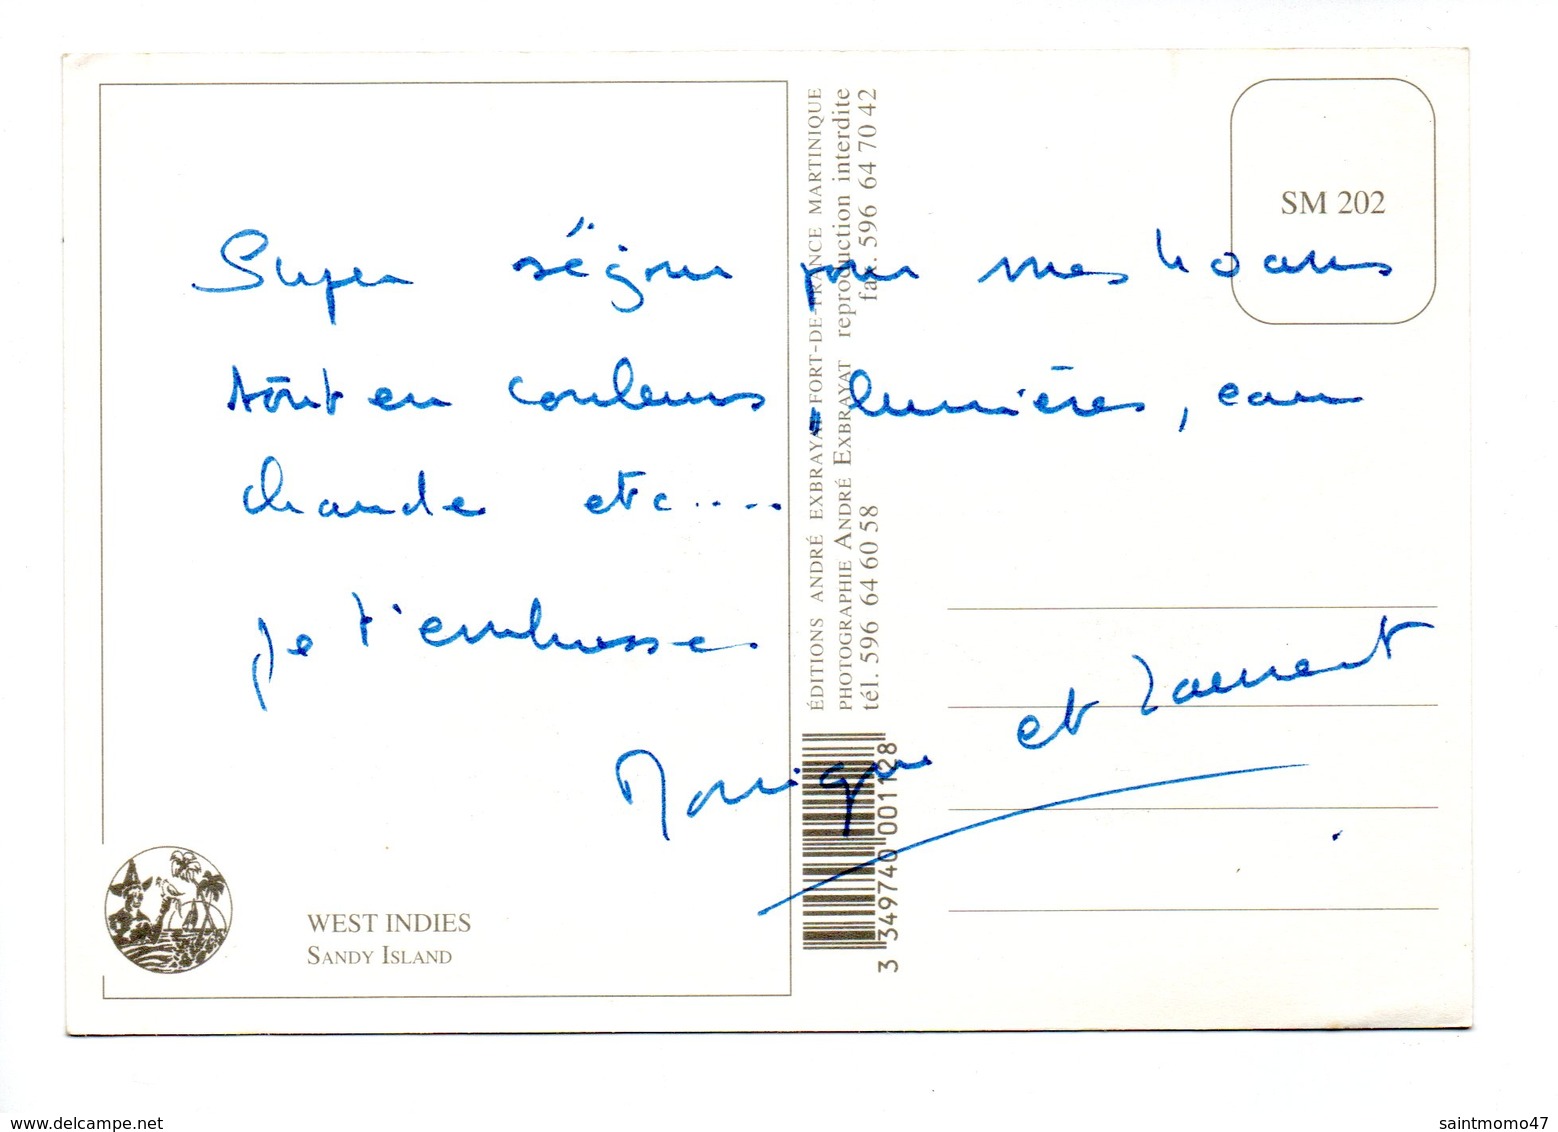 Super séjour pour mes 40 ans
tout en couleurs, lumières, eau
chaude etc.....
je t'embrasse
Monique et Laurent
WEST INDIES
SANDY ISLAND
ÉDITIONS ANDRÉ EXBRAYAT FORT-DE-FRANCE MARTINIQUE
PHOTOGRAPHIE ANDRÉ EXBRAYAT reproduction interdite
tél. 596 64 60 58 fax. 596 64 70 42
3 349740 001128
SM 202
saintmomo47